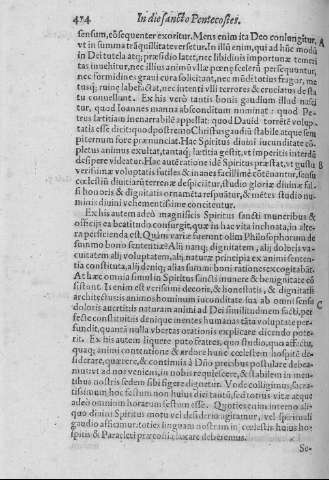 414 In die sancto Pentecostes.
sensum, cõsequenter exoritur. Mens enim ita Deo coniungitur, A
vt in summa trãquillitate versetur. In illũ enim, qui ad hũc modũ
in Dei tutela atq; præsidio latet, nec libidinis importunæ temeri
tas inuehitur, nec illius animũ vllæ pœnę scelerũ persequuntur,
nec formidines graui cura solicitant, nec metus fragor, me
tusq; ruinę labefactat, nec intenti vlli terrores & cruciatus de sta
tu conuellunt. Ex his verò tantis bonis gaudium illud nasci
tur, quod Ioannes manna absconditum nominat: quod Pe-
trus lætitiam inenarrabilẽ appellat: quod Dauid torrẽtẽ volup-
tatis esse dicit: quod postremò Christus gaudiũ stabile atque sem
piternum fore pronunciat. Hac Spiritus diuini iucunditate cõ-
pletus animus exultat, tantaq; lætitia gestit, vt
despere videatur. Hac autẽ ratione idẽ Spiritus præstat, vt gustu B
verissimæ voluptatis futiles & inanes facillimè cõtẽnantur, sensu
cœlestiũ diuitiarũ terrenæ despiciatur, studio gloriæ diuinæ fal-
si honoris & dignitatis ornamẽta respuãtur, & mẽtes studio nu-
minis diuini vehementissimè concitentur.
Ex his autem adeò magnificis Spiritus sancti muneribus &
officijs ea beatitudo consurgit, quæ in hac vita inchoata, in alte-
ra perficienda est. Quàm variæ fuerunt olim Philosophorum de
summo bono sententiæ? Alij nanq; dignitatem, alij doloris va-
cuitatem alij voluptatem, alij naturæ principia ex animi senten-
tia constituta, alij deniq; alias summi boni rationes excogitabãt.
At hæc omnia simul in Spiritus sancti munere & benignitate cõ
sistunt. Is enim est verissimi decoris, & honestatis, & dignitatis
architectus: is animos hominum iucunditate sua ab omni sensu C
doloris auertit: is naturam animi ad Dei similitudinem facti, per
fectè constituit: is denique mentes humanas tãta voluptate per-
fundit, quantã nulla vbertas orationis explicare dicendo pote-
rit. Ex his autem liquere puto fratres, quo studio, quo affectu,
quaq; animi contentione & ardore hunc cœlestem hospitẽ de-
siderare, quærere, & continuis à Dño precibus postulare debea-
mus: vt ad nos veniens, in nobis requiescere, & stabilem in men-
tibus nostris sedem sibi figere dignetur. Vnde colligimus, sacra-
tissimum hoc festum non huius dici tantũ, sed totius vitæ atque
adeò omnium horarum festum esse. Quoties enim interno ali-
quo diuini Spiritus motu vel desiderio agitamur, vel spirituali
gaudio afficimur: toties linguam nostram in cœlestis huius ho-
spitis & Paracleti præconia laxare deberemus.
So-